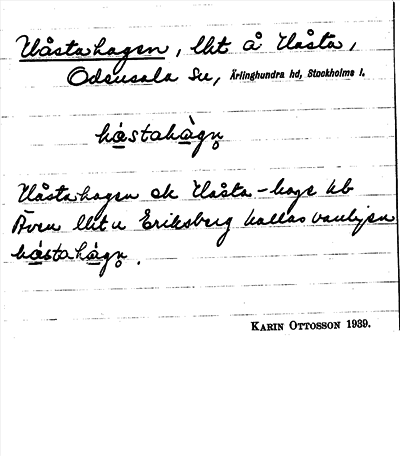 Håstahagen, lht å Håsta,
Odensala Sn, Ärlinghundra hd, Stockholms l.
hå̀stahàgn̥
Håstahagen ek Håsta-hage kb
Även lht u Eriksberg kallas vanligen
hå̀stahàgn̥.
KARIN OTTOSSON 1939.